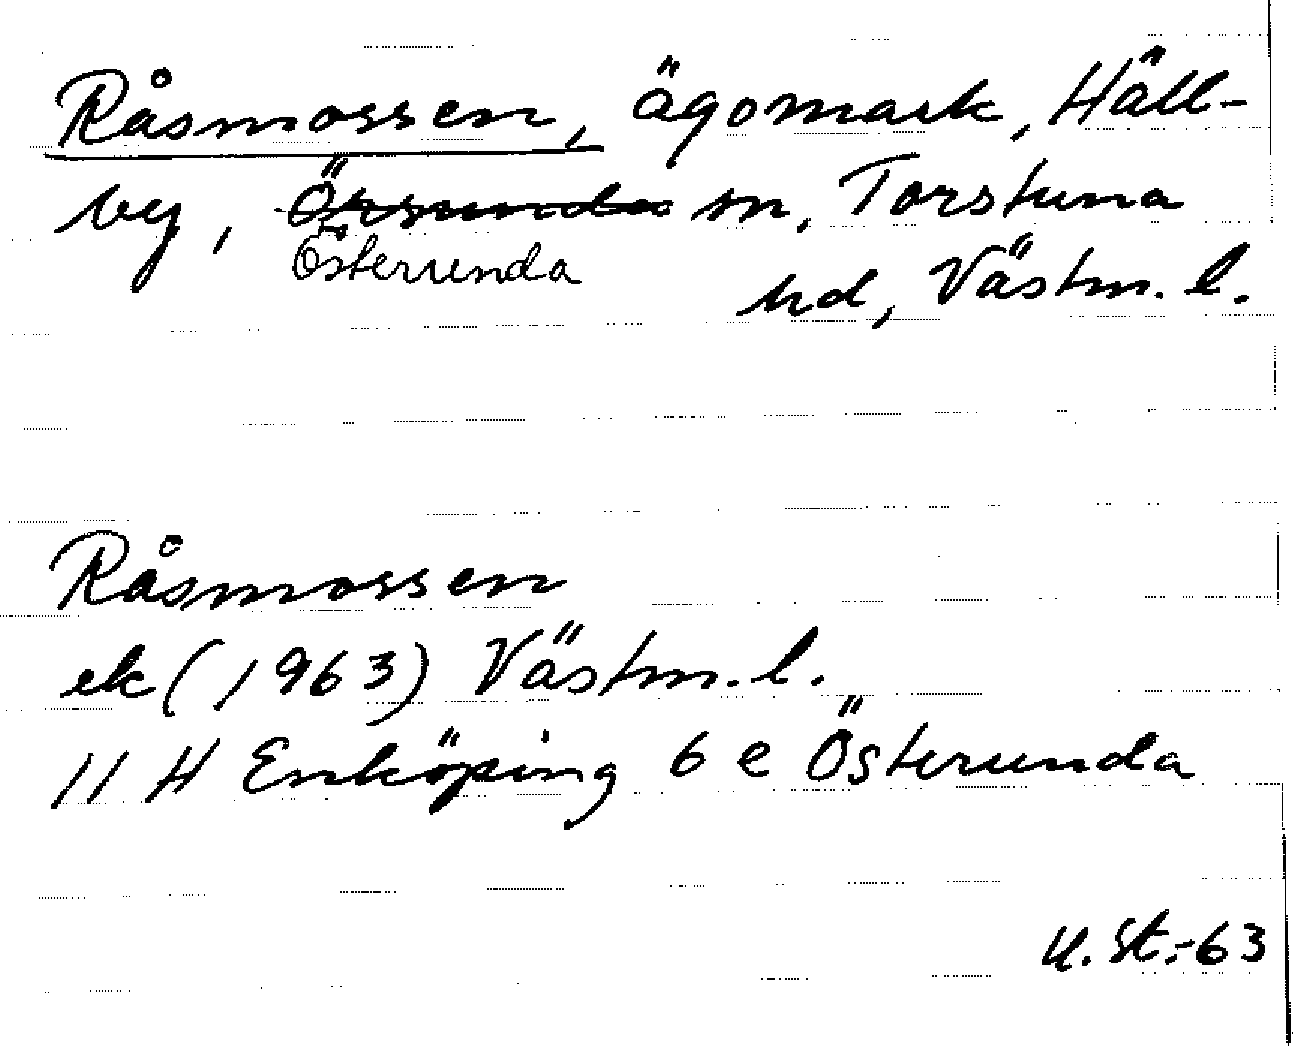 Råsmossen, ägomark, Häll-
by, Örsunda sn, Torstuna
Österunda
hd, Västm. l.
Råsmossen
ek (1963) Västm. l.
11 H Enköping 6 e Österunda
U. St. -63